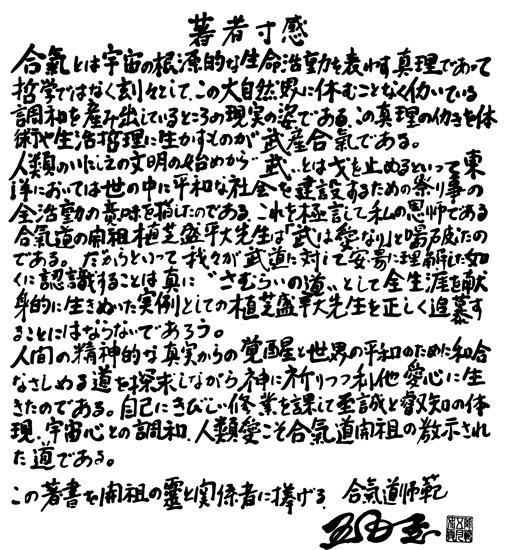 著者寸感
合氣とは宇宙の根源的な生命活動を表わす真理であって
哲学ではなく刻々として、この大自然界に休むことなく仂いている
調和を産み出しているところの現実の姿である。この真理の仂きを体
術や生活哲理に生かすものが武産合氣である。
人類のいにしえの文明の始めから"武"とは戈を止めるといって東
洋においては世の中に平和な社会を建設するための祭り事の
全活動の意味を指したのである。これを極言して私の恩師である
合氣道の開祖植芝盛平大先生は「武は愛なり」と喝破したの
である。だからといって我々が武道に対して安易に理解した如
くに認識することは真に"さむらいの道"として全生涯を献
身的に生きぬいた実例としての植芝盛平大先生を正しく追慕す
ることにはならないであろう。
人間の精神的な真実からの覚醒と世界の平和のために和合
なさしめる道を探求しながら神に祈りつつ利他愛心に生
きたのである。自己にきびしい修業を課して至誠と叡知の体
現、宇宙心との調和、人類愛こそ合氣道開祖の教示され
た道である。
この著書を開祖の靈と関係者に捧げる。 合氣道師範